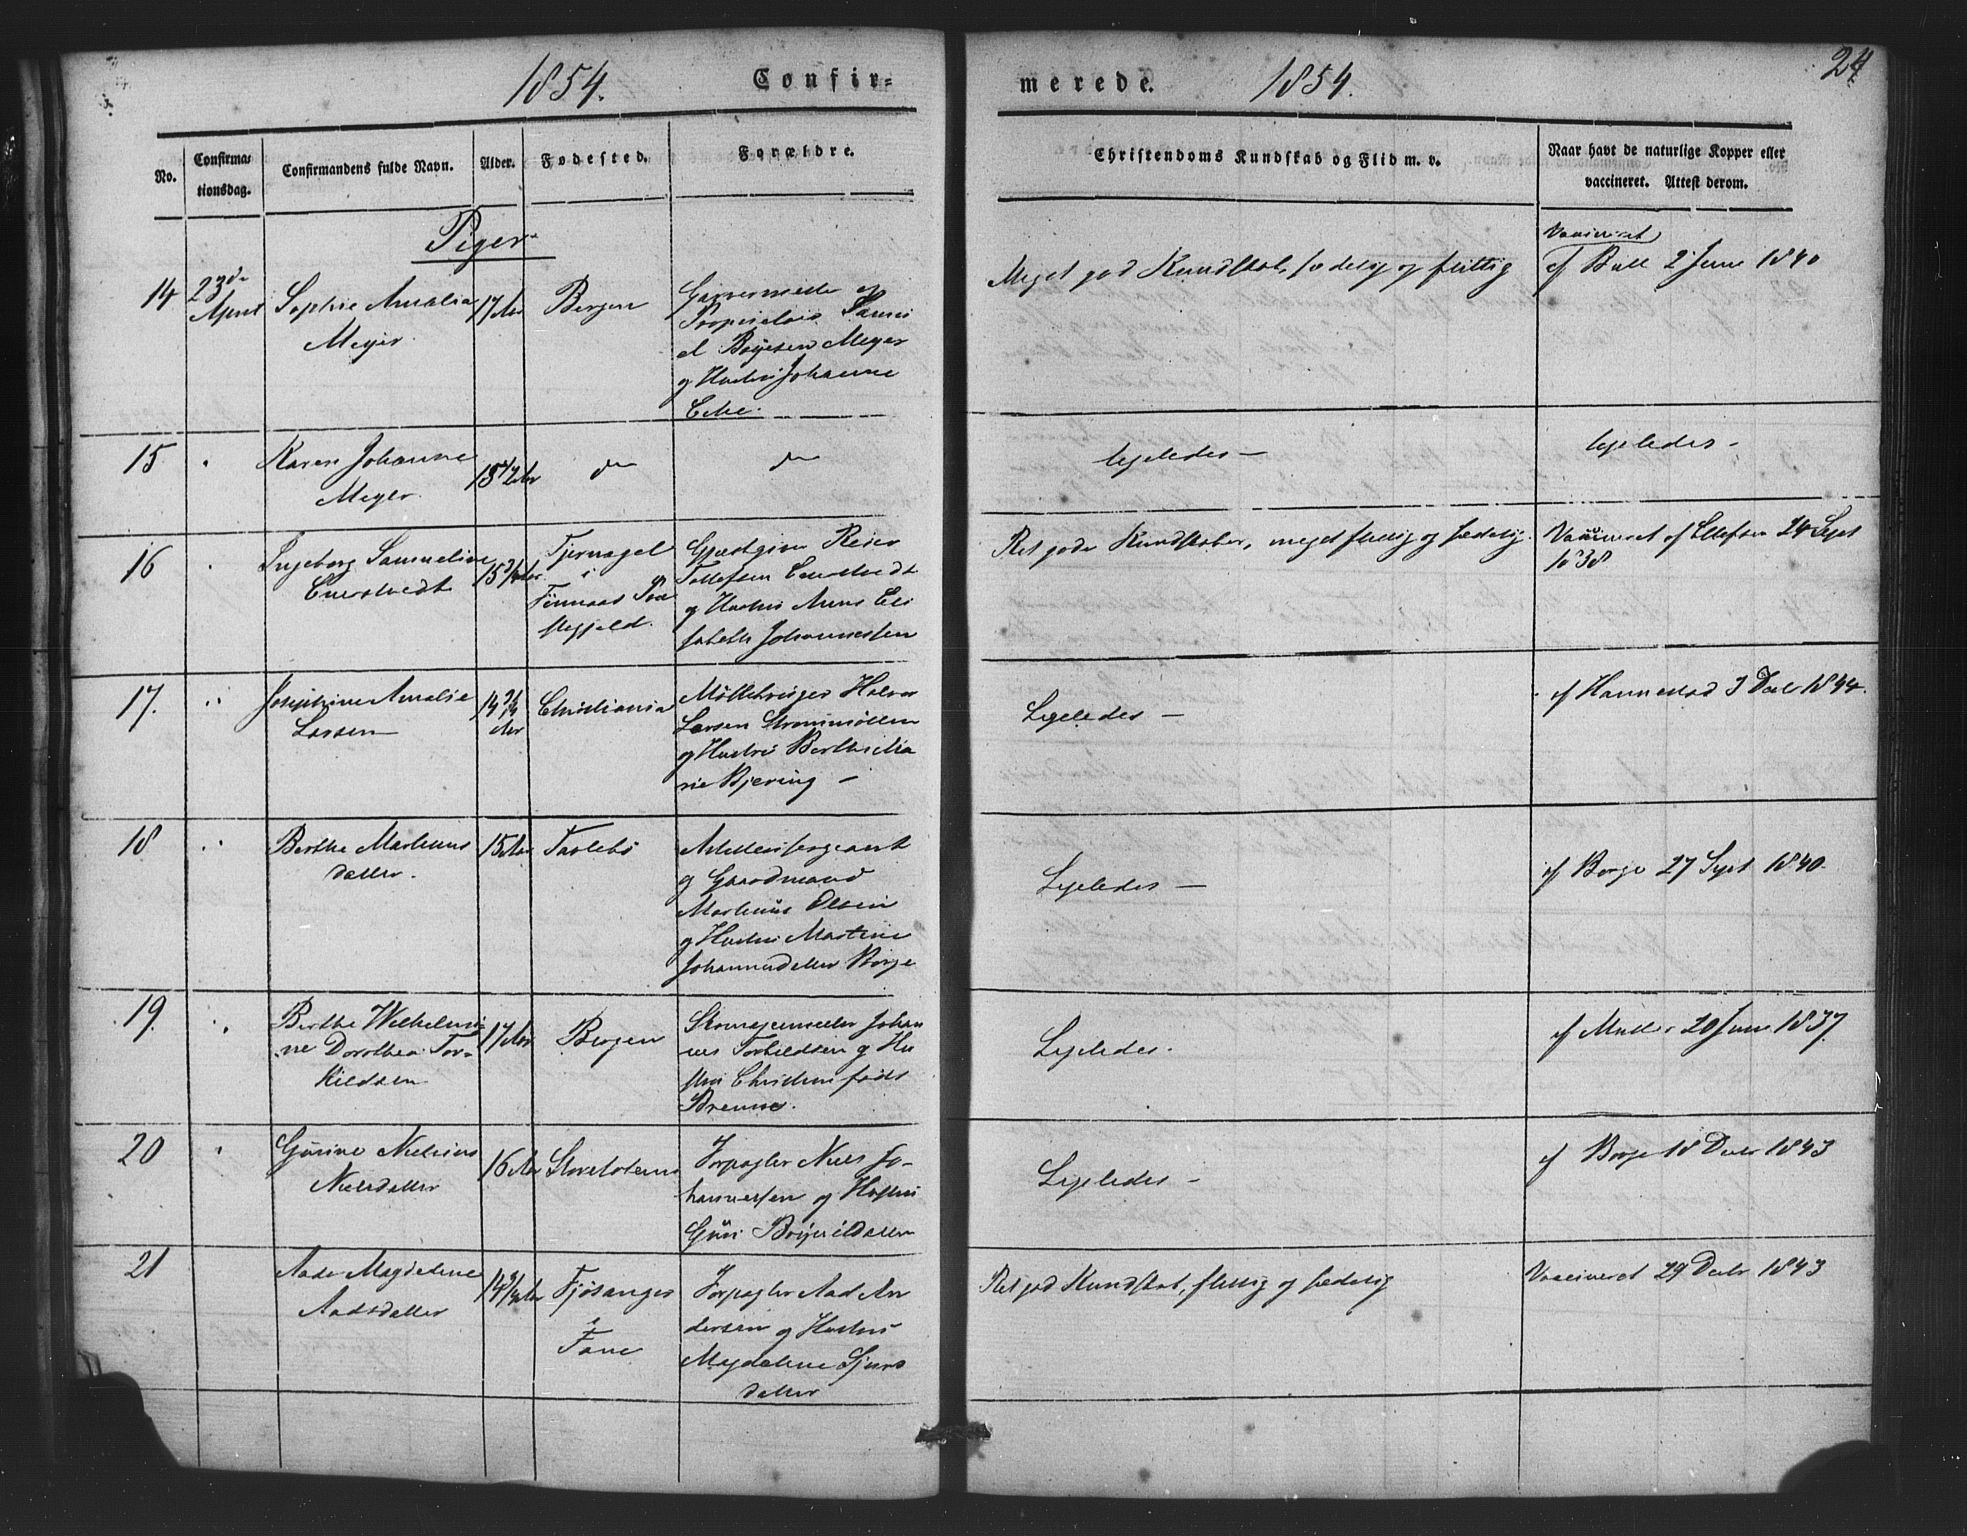 1854. Confir=
merede. 1854.
24
No. Confirma=tionsdag. Confirmandens fulde Navn. Alder. Fødested. Forældre. Christendoms Kundskab og Flid m. v. Naar havt de naturlige Kopper eller vaccineret. Attest derom.
Piger
14 23de April
Sophie Amalia
Meyer
17 Aar
Bergen
og
Samu
el Boyesen Meyer
og Hustru Johanne
Meget god Kundskab, sædelig og flittig
Vaccineret
af Bull 2 Juni 1840
15
Karen Johanne
Meyer
15 1/2 Aar
do
do
ligeledes
ligeledes
16
Ingeborg Samueline
15
Tjernagel
i
Finnaas Præ
stegjeld.
Gjæstgiver Reier
Tollefsen
og Hustru Anne Eli
sabeth Johannessen
Ret gode Kundskaber, meget flittig og sædelig.
Vaccineret af Ellefsen 24 Sept
1838
17.
Josephine Amalie
Larsen
14 3/4
Aar
Christiania
Halvor
Larsen Strømmøllen
og Hustru Berthe Ma
rie Bjering
Ligeledes
af Hannestad 3 Decbr 1844.
18
Berthe Martinus
datter.
15 Aar
og Gaardmand
Martinus Olsen
og Hustru Martine
Johannesdatter Borge
Ligeledes
af Borge 27 Sept 1840.
19.
Berthe Wilhelmi
ne Dorothea Tor-
kildsen
17 Aar
Bergen
Skomagermester Johan
nes Torkildsen og Hu
stru Christine født
Ligeledes.
af Müller 20 Juni 1837.
20
Gurine Nielsine
Nielsdatter
16 Aar
Forpagter Niels Jo-
hannessen og Hustru
Guri
Ligeledes
af Borge 18 Decbr 1843
21
Aade Magdelene
Aadsdatter
14 3/4 Aar
Fjøsanger
i
Fane
Forpagter Aad An
dersen og Hustru
Magdelene Sjurs
datter
Ret god Kundskab, flittig og sædelig
Vaccineret 29 Decbr 1843